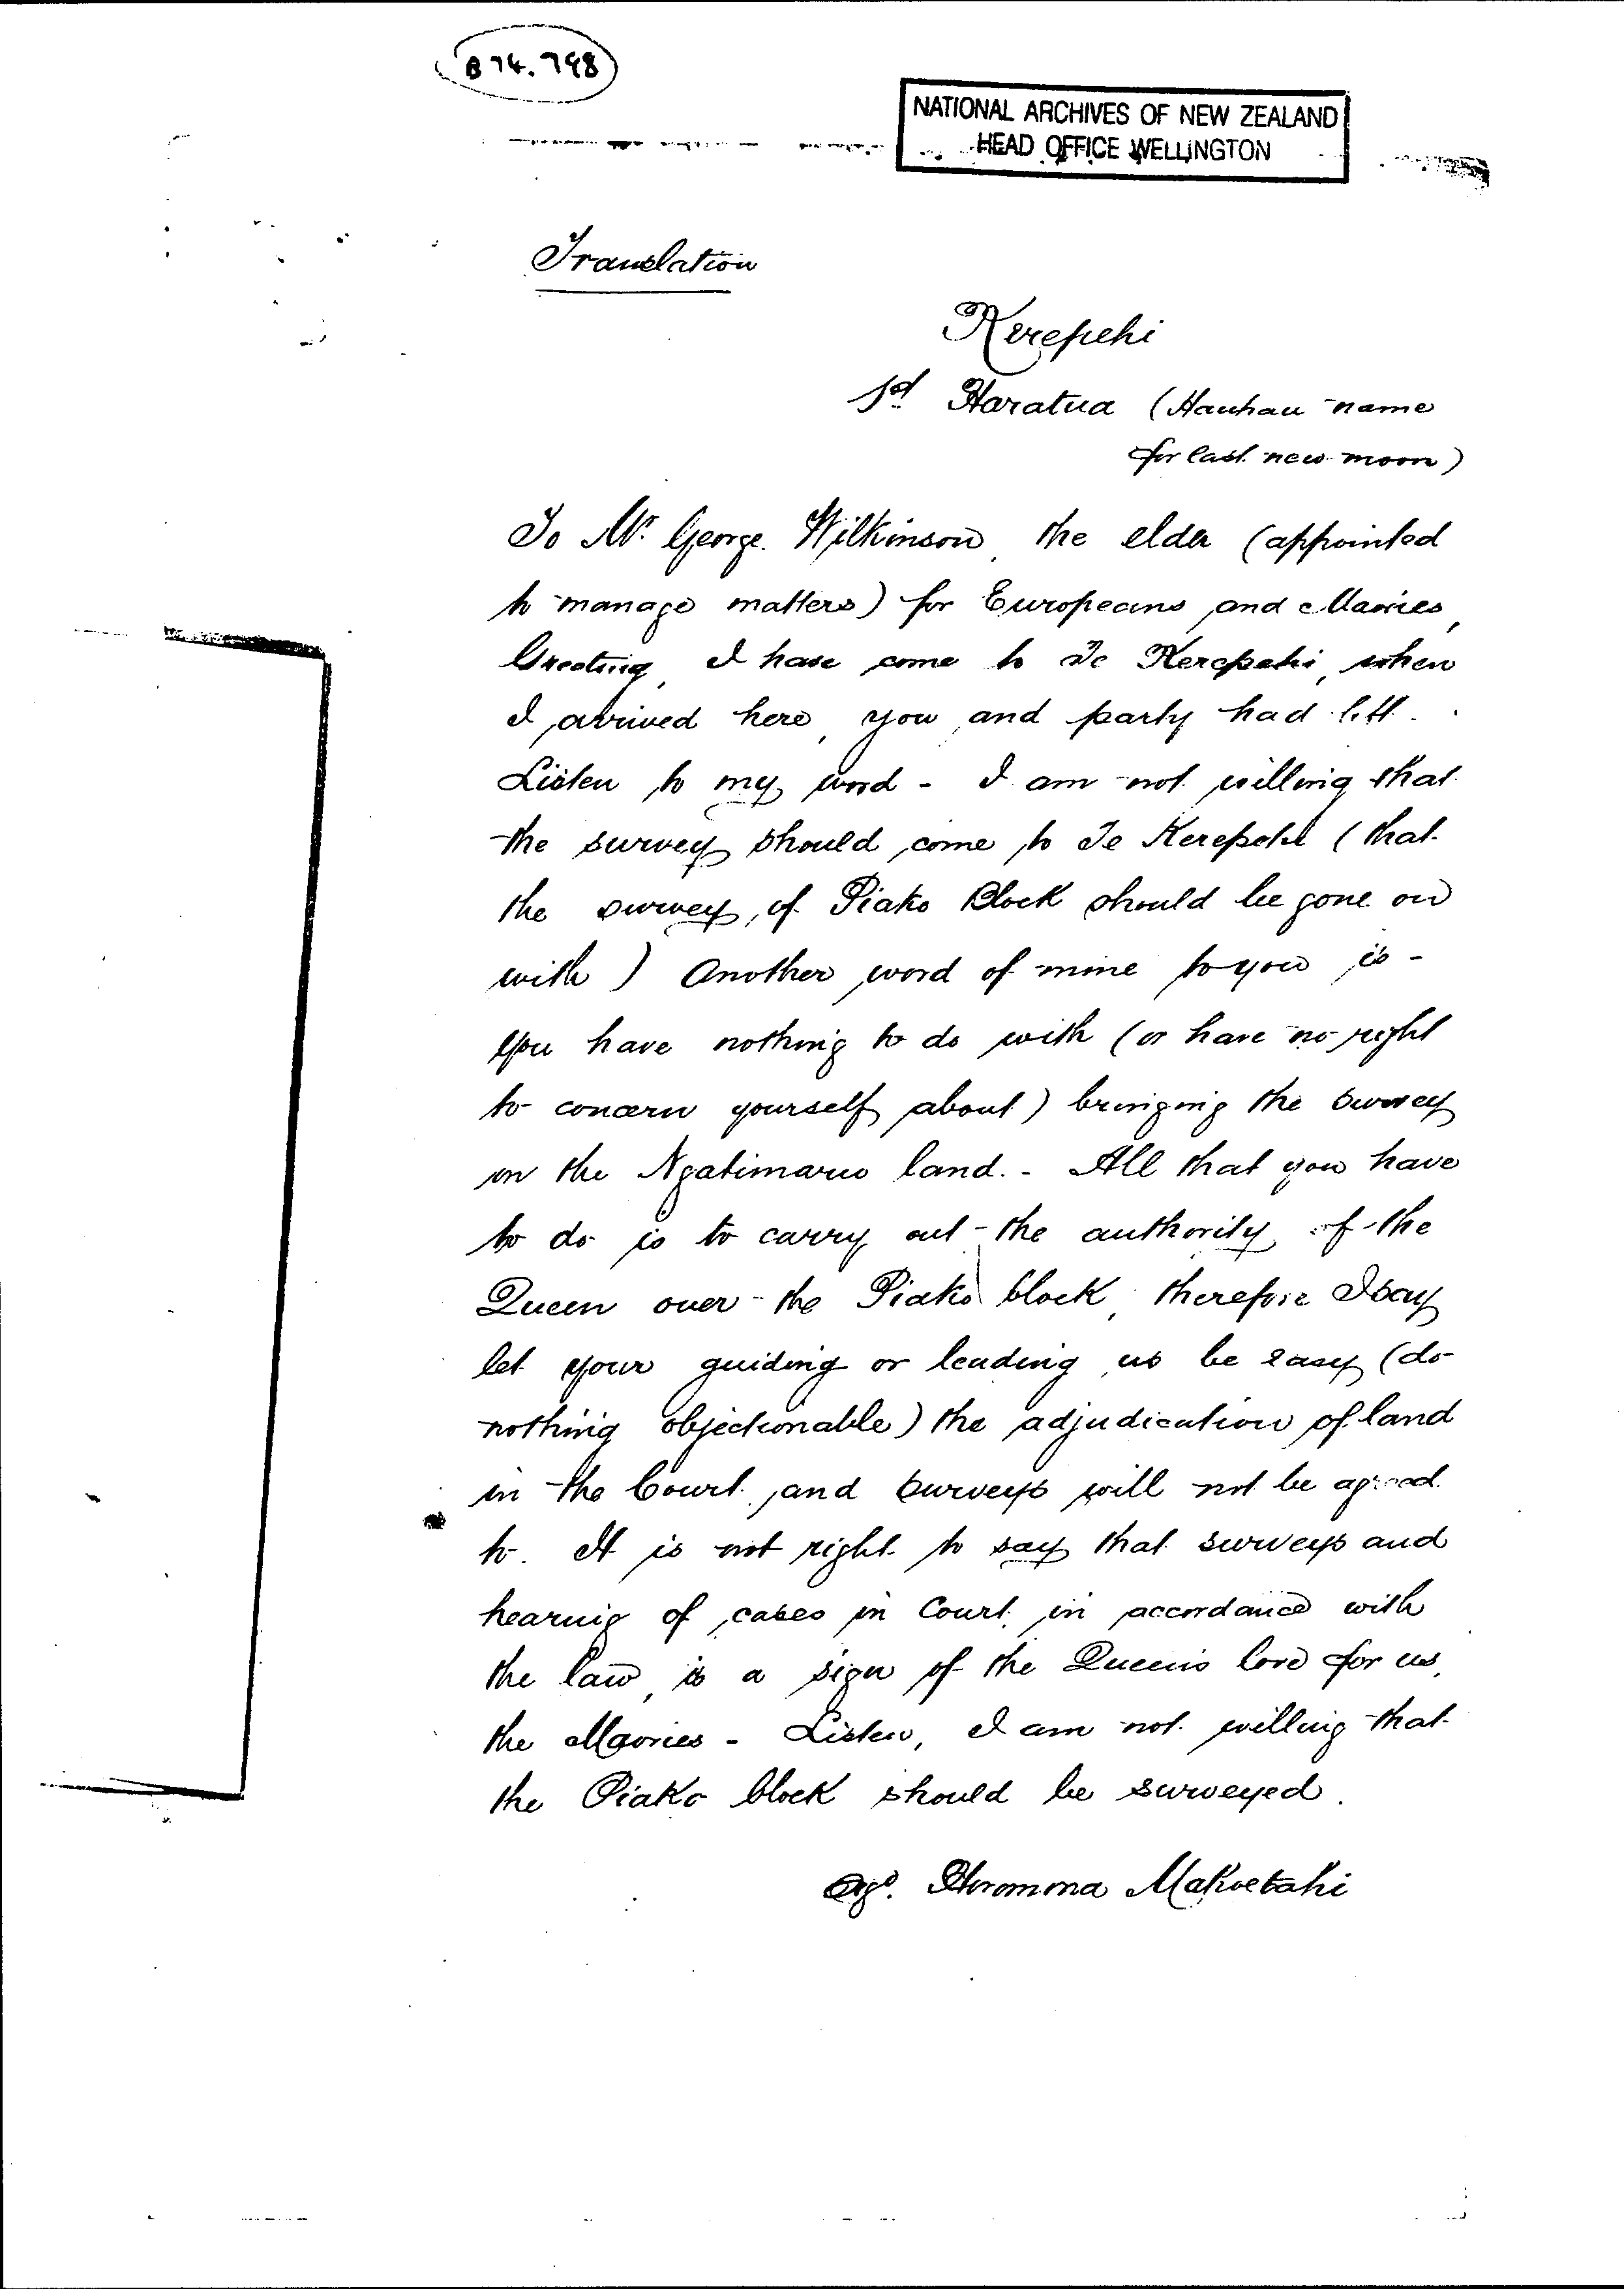 B 74. 798
NATIONAL ARCHIVES OF NEW ZEALAND
HEAD OFFICE WELLINGTON
Translation
Kerepehi
1st Haratua (Hauhau name
for last new moon)
To Mr. George Wilkinson, the elder (appointed
to manage matters) for Europeans and Maories,
Greeting, I have come to Te Kerepehi, when
I arrived here, you and party had left.
Listen to my word - I am not willing that
the survey should come to Te Kerepehi (that
the survey of Piako Block should be gone on
with) Another word of mine to you is -
you have nothing to do with (or have no right
to concern yourself about) bringing the survey
on the Ngatimaru land. - All that you have
to do is to carry out the authority of the
Queen over the Piako block, therefore I say
let your guiding or leading us be easy (do
nothing objectionable) the adjudication of land
in the Court and surveys will not be agreed
to. It is not right to say that surveys and
hearing of cases in Court in accordance with
the law, is a sign of the Queen's love for us,
the Maories - Listen, I am not willing that
the Piako block should be surveyed.
Sgd. Makoetahi